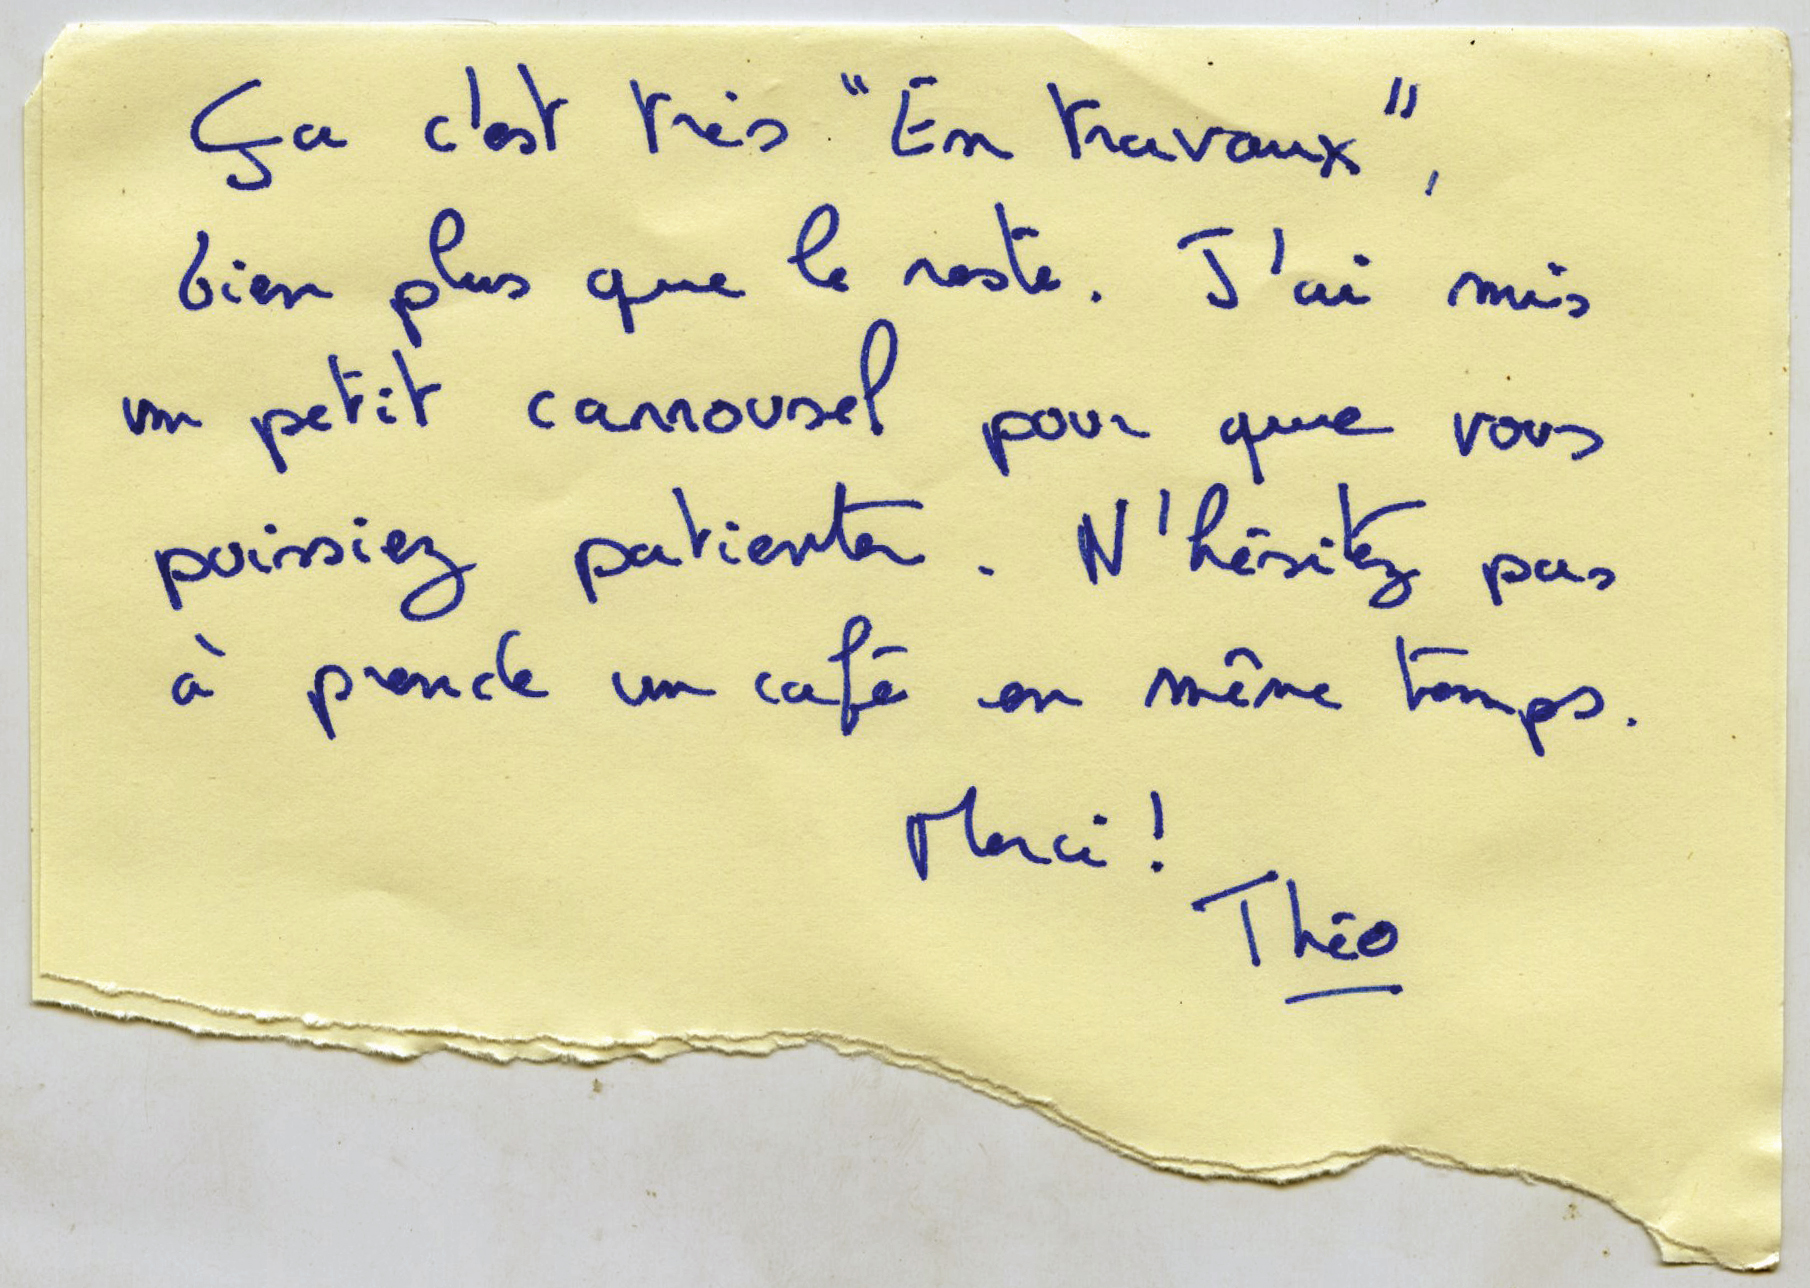 Ça c'est très "En travaux",
bien plus que le reste. J'ai mis
un petit carrousel pour que vous
puissiez patienter. N'hésitez pas
à prendre un café en même temps.
Merci !
Théo